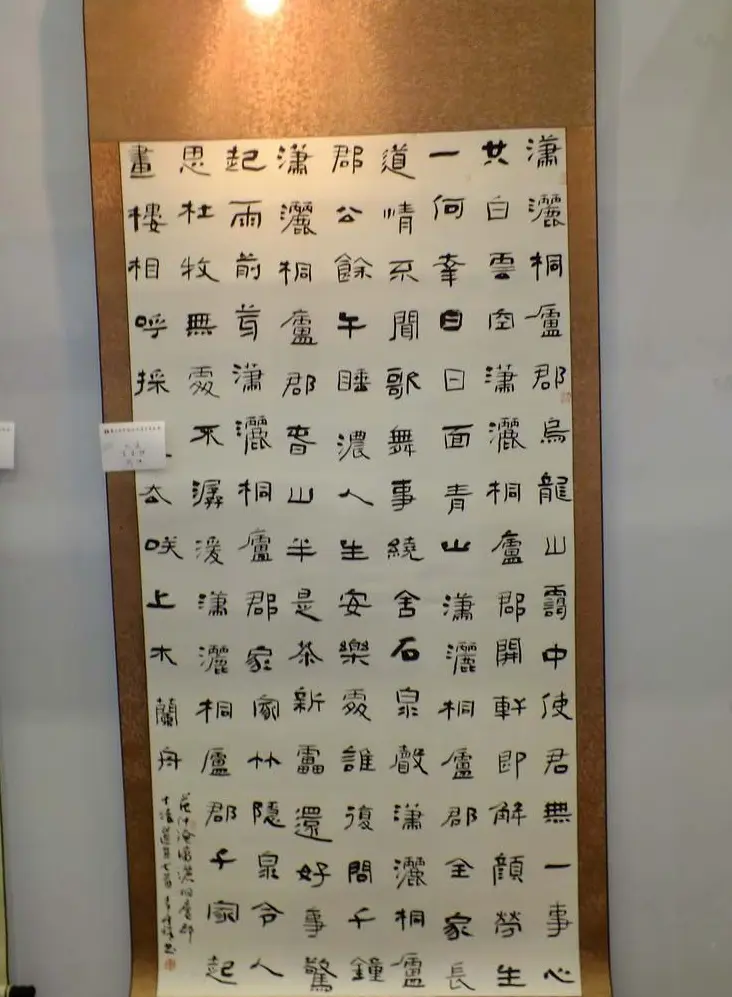 瀟灑桐廬郡烏龍山靄中使君無一事心
共白雲空瀟灑桐廬郡開軒即解顏勞生
一何幸日日面青山瀟灑桐廬郡全家長
道情不聞歌舞事繞舍石泉聲瀟灑桐廬
郡公餘午睡濃人生安樂處誰復問千鐘
瀟灑桐廬郡春山半是茶新雷還好事驚
起雨前芽瀟灑桐廬郡家家竹隱泉令人
思杜牧無處不潺湲瀟灑桐廬郡千家起
畫樓相呼採去咲上木蘭舟
范仲淹瀟灑桐廬郡
十詠